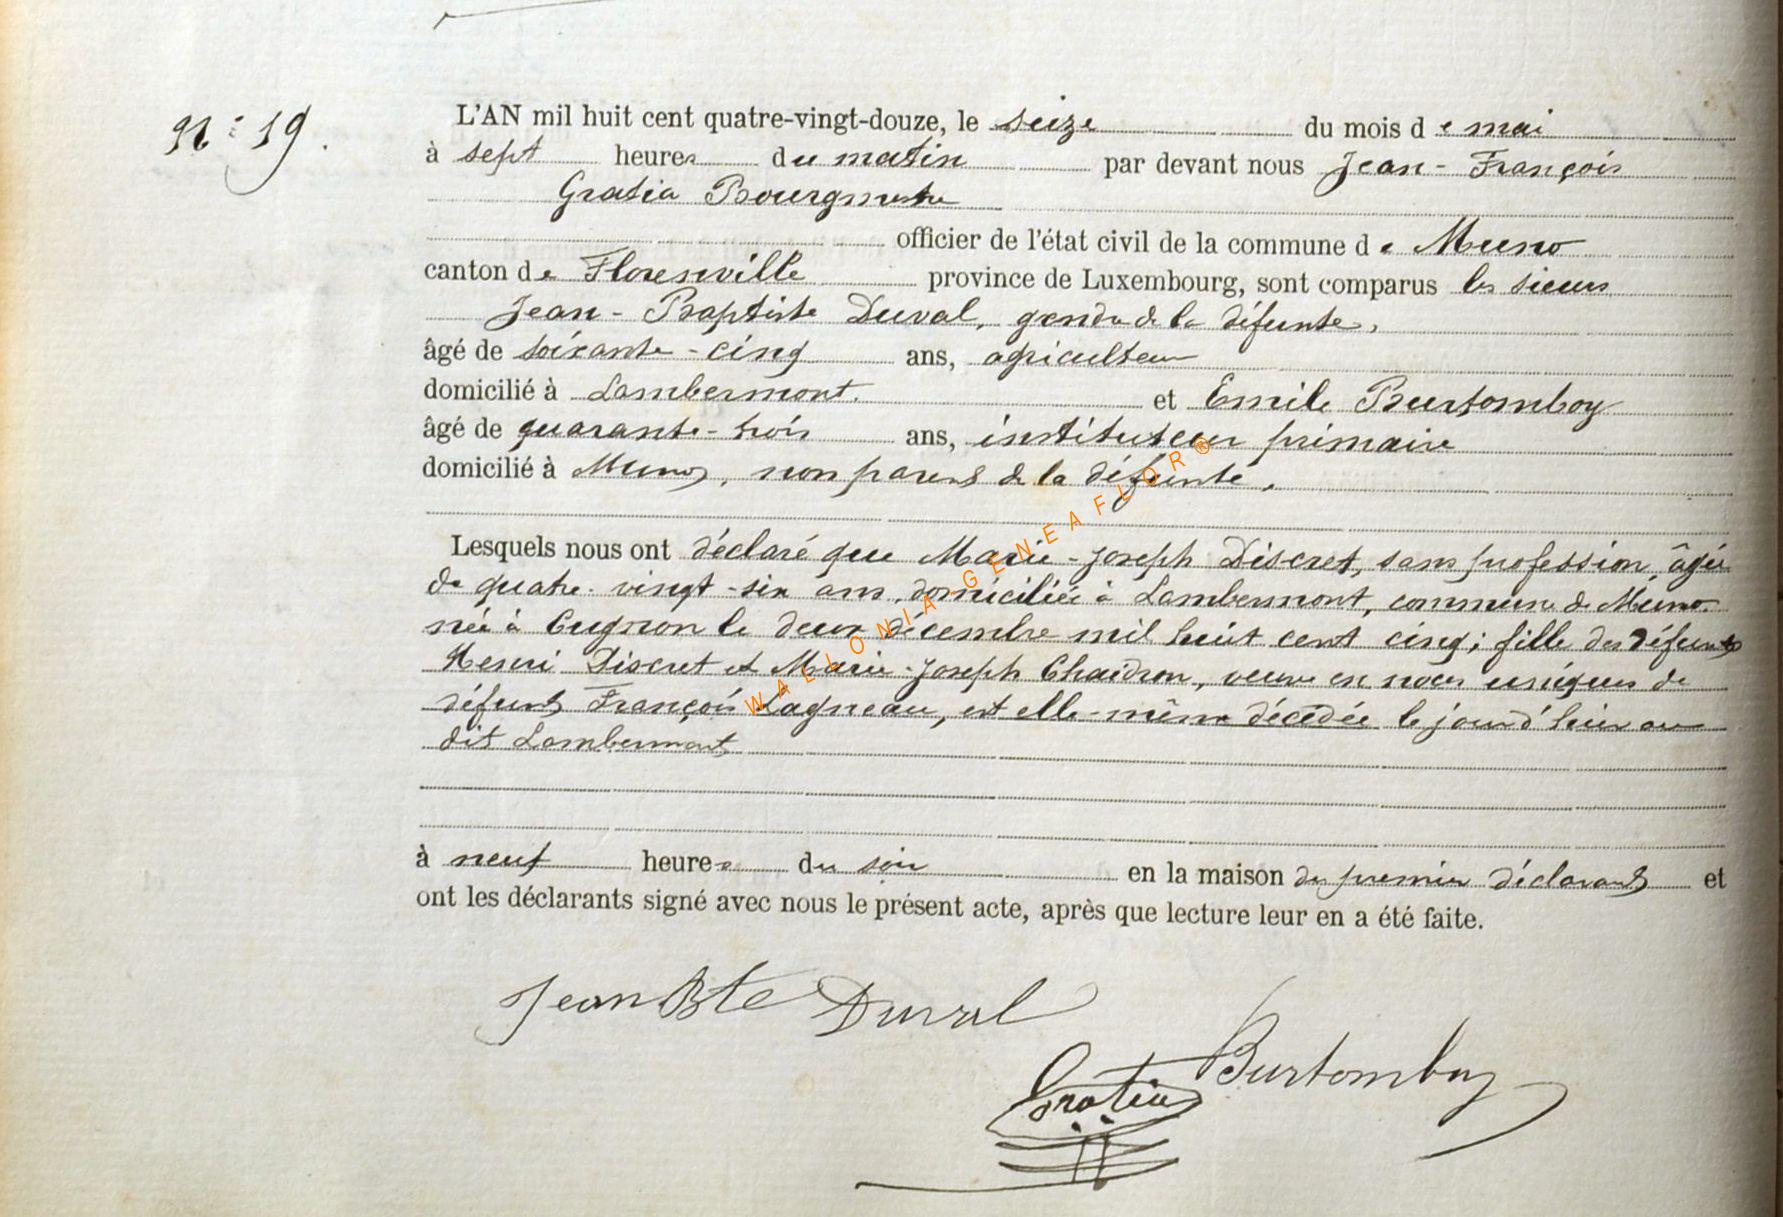 N° 19.
L'AN mil huit cent quatre-vingt-douze, le seize du mois de mai
à sept heures du matin par devant nous Jean-François
Gratia Bourgmestre
officier de l'état civil de la commune de Muno
canton de Florenville province de Luxembourg, sont comparus les sieurs
Jean-Baptiste Duval, gendre de la défunte,
âgé de soixante-cinq ans, agriculteur
domicilié à Lambermont. et Emile Burtomboy
âgé de quarante-trois ans, instituteur primaire
domicilié à Muno, non parent de la défunte.
Lesquels nous ont déclaré que Marie-Joseph Discret, sans profession, âgée
de quatre-vingt-six ans, domiciliée à Lambermont, commune de Muno
née à Cugnon le deux décembre mil huit cent cinq; fille des défunts
Henri Discret et Marie-Joseph Chaidron, veuve en noces uniques de
défunt François Lagneau, est elle-même décédée le jour d'hier au
dit Lambermont
à neuf heures du soir en la maison du premier déclarant et
ont les déclarants signé avec nous le présent acte, après que lecture leur en a été faite.
Jean Bte Duval
Burtomboy
Gratia
WALLONIA-GENEAFLOR®